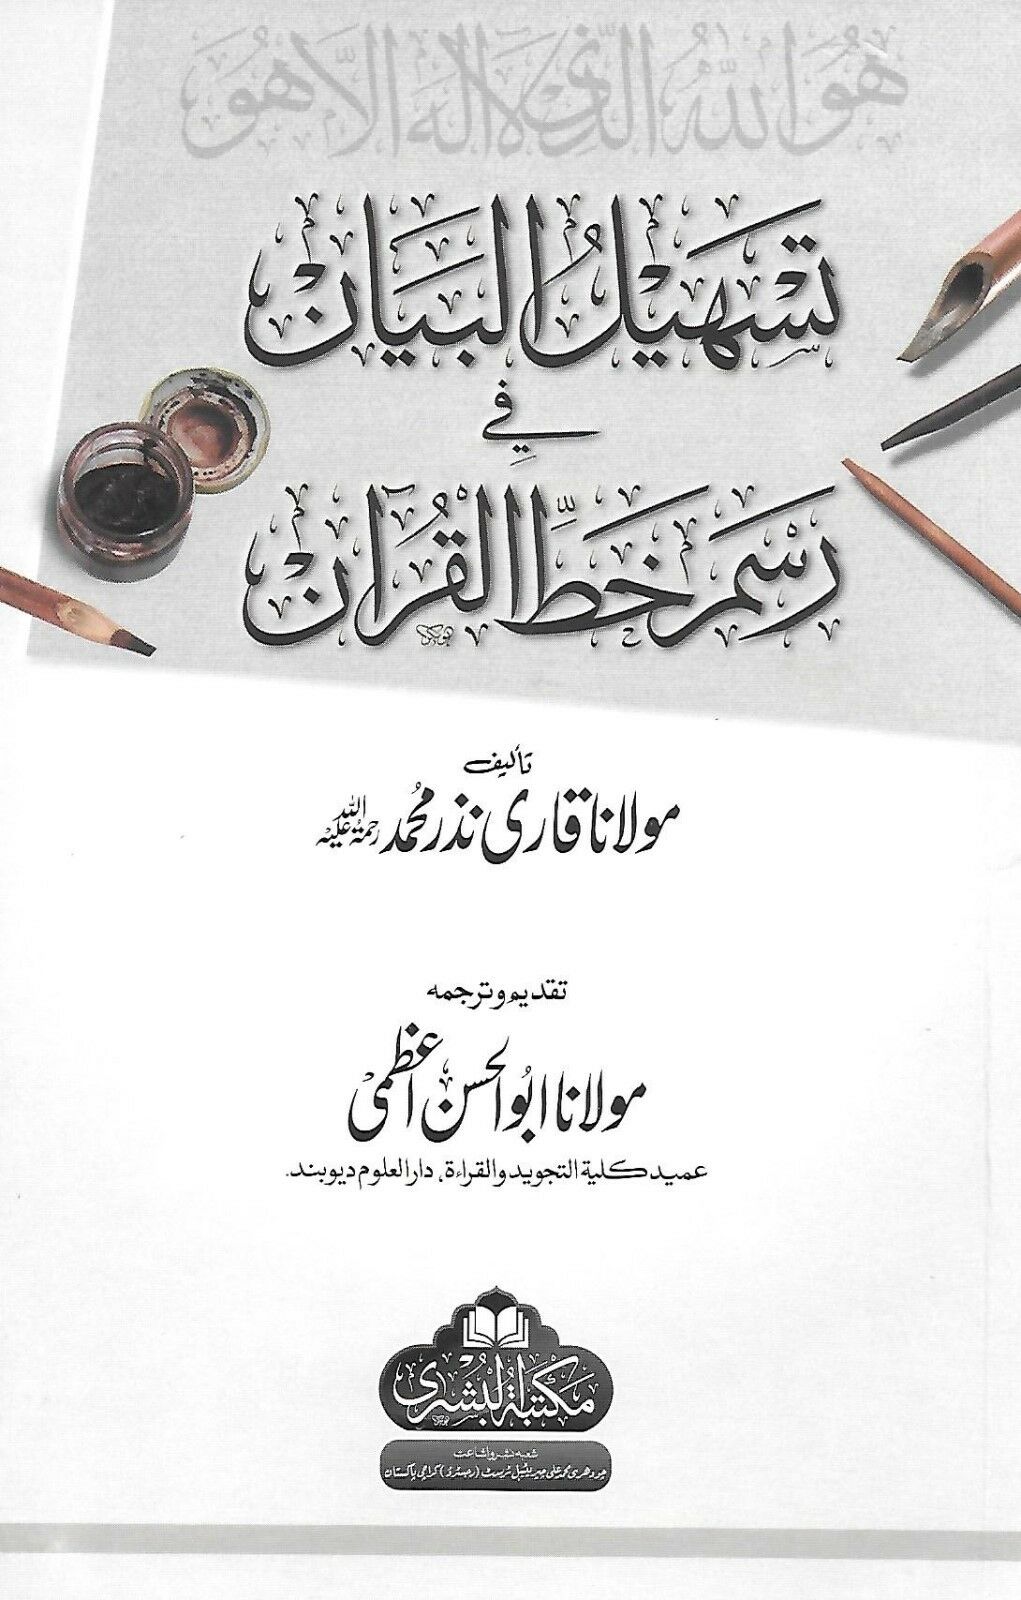 هُوَ اللهُ الَّذِي لَا إِلَهَ إِلَّا هُوَ
تَسْهِيلُ الْبَيَان
فِي
رَسْمِ خَطِّ الْقُرْآن
تأليف
مولانا قاری نذر محمد رحمۃ اللہ علیہ
تقديم و ترجمه
مولانا ابو الحسن اعظمی
عميد كلية التجويد والقراءة، دار العلوم ديوبند۔
مكتبة البشرى
شعبہ نشر و اشاعت
چودھری محمد علی چیریٹیبل ٹرسٹ (رجسٹرڈ) کراچی پاکستان